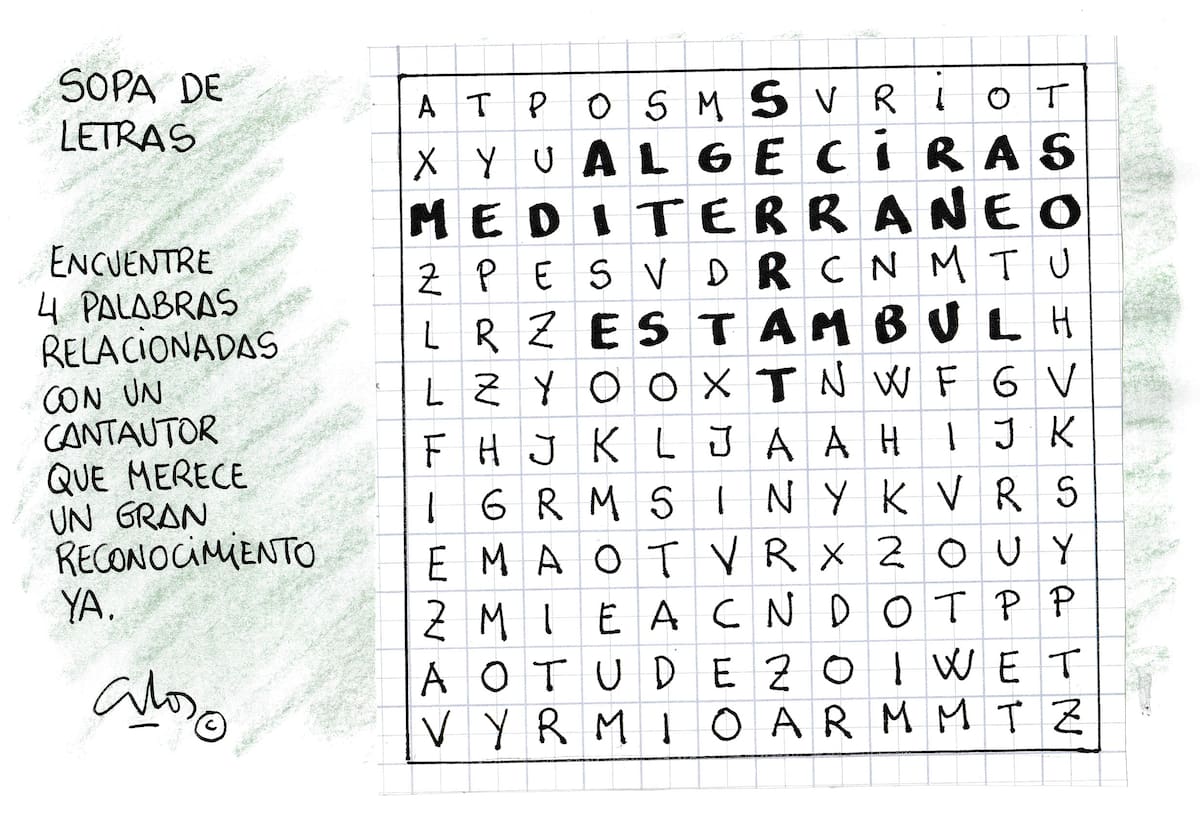 SOPA DE
LETRAS
ENCUENTRE
4 PALABRAS
RELACIONADAS
CON UN
CANTAUTOR
QUE MERECE
UN GRAN
RECONOCIMIENTO
YA.
©
A T P O S M S V R I O T
X Y U A L G E C I R A S
M E D I T E R R A N E O
Z P E S V D R C N M T U
L R Z E S T A M B U L H
L Z Y O O X T N W F G V
F H J K L J A A H I J K
I G R M S I N Y K V R S
E M A O T V R X Z O U Y
Z M I E A C N D O T P P
A O T U D E Z O I W E T
V Y R M I O A R M M T Z